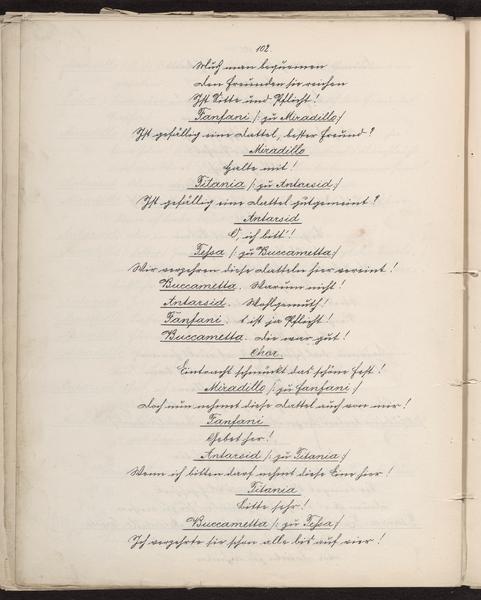 102.
Muß man bequemen
den Freunden sie reichen
Ist Sitte und Pflicht!
Fanfani /: zu Miradillo :/
Ist gefällig eine Dattel, bester Freund?
Miradillo
Halte mit!
Titania /: zu Antarsid :/
Ist gefällig eine Dattel gutgemeint?
Antarsid
O, ich bitt'!
Tessa /: zu Buccametta :/
Wir verzehren diese Datteln hier vereint!
Buccametta. Warum nicht!
Antarsid. Wohlgemuth!
Fanfani. 's ist ja Pflicht!
Buccametta. Die war gut!
Chor.
Eintracht schmückt das schöne Fest!
Miradillo /: zu Fanfani :/
Doch nun nehmet diese Dattel auch von mir!
Fanfani
Gebet her!
Antarsid /: zu Titania :/
Wenn ich bitten darf nehmt diese Eine hier!
Titania
Bitte sehr!
Buccametta /: zu Tessa :/
Ich verzehrte sie schon alle bis auf vier!